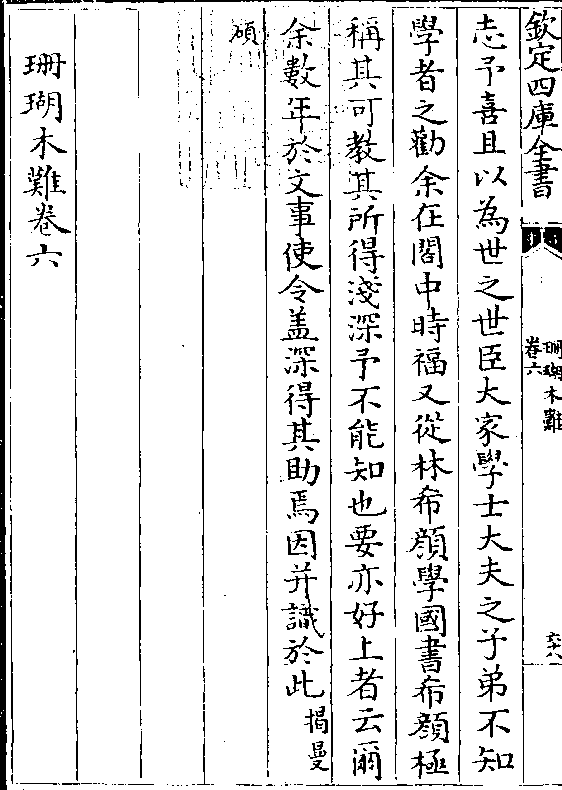 欽定四庫全書
珊瑚木難
卷六
六十八
志予喜且以為世之世臣大家學士大夫之子弟不知
學者之勸余在閣中時福又從林希顔學國書希顔極
稱其可教其所得淺深予不能知也要亦好上者云爾
余數年於文事使令盖深得其助焉因并識於此揭曼
碩
珊瑚木難卷六